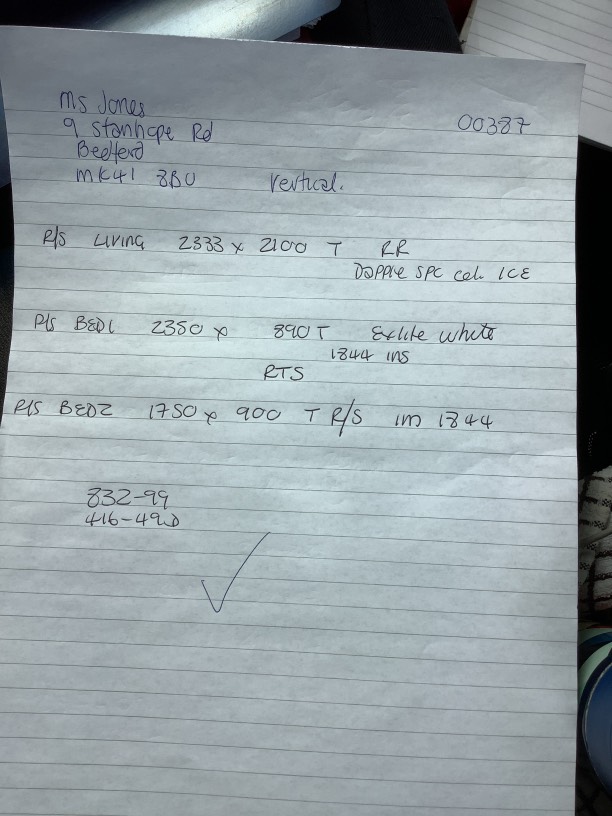 Ms Jones
9 Stanhope Rd
Bedford
MK41 8BU
00387
Vertical.
R/S Living 2333 x 2100 T RR
Dapple SPC Col. ICE
R/S BED1 2350 x 890 T Exlite White
1844 ins
RTS
R/S BED2 1750 x 900 T R/S 1m 1844
832-99
416-49 D